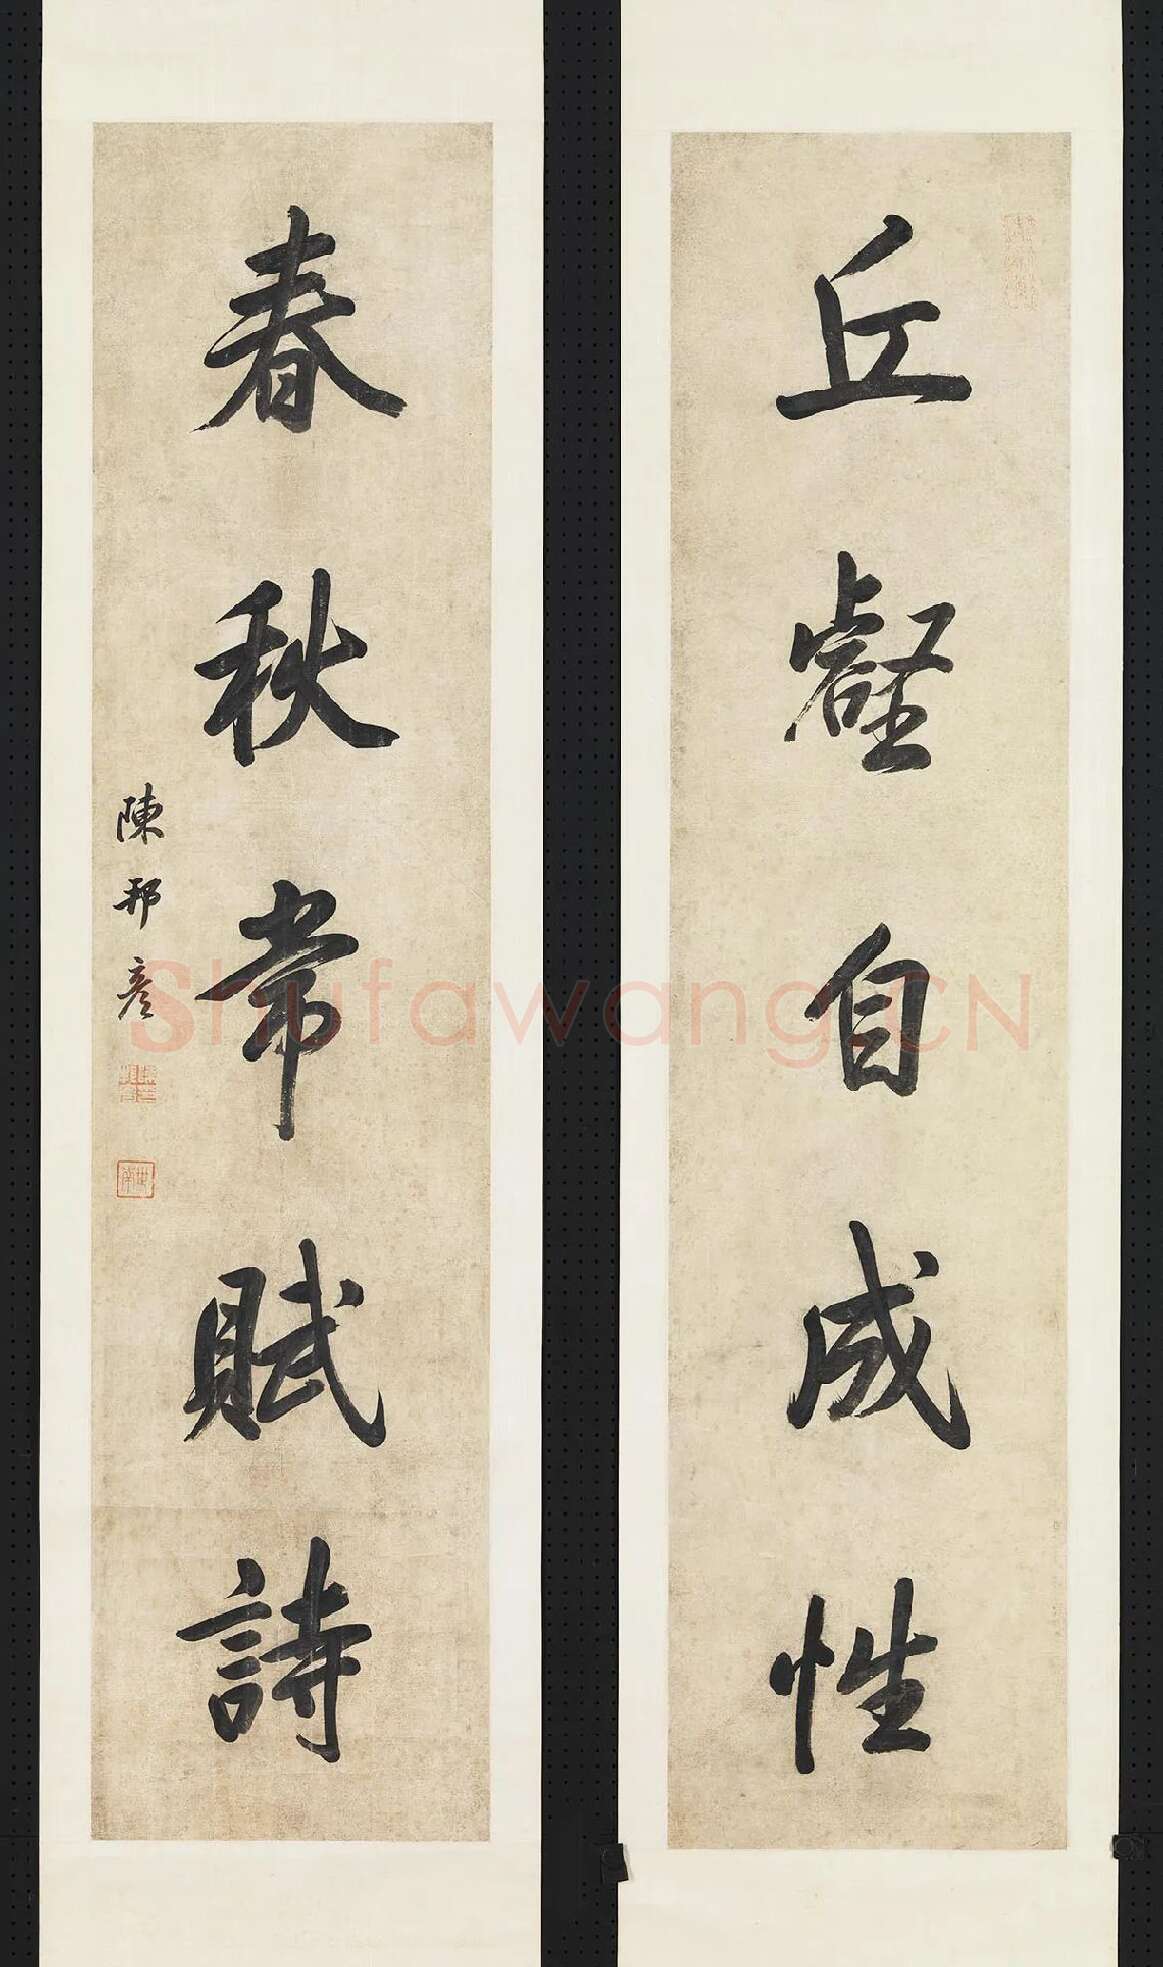 丘壑自成性
春秋常賦詩
陳邦彥
Shufawang.CN